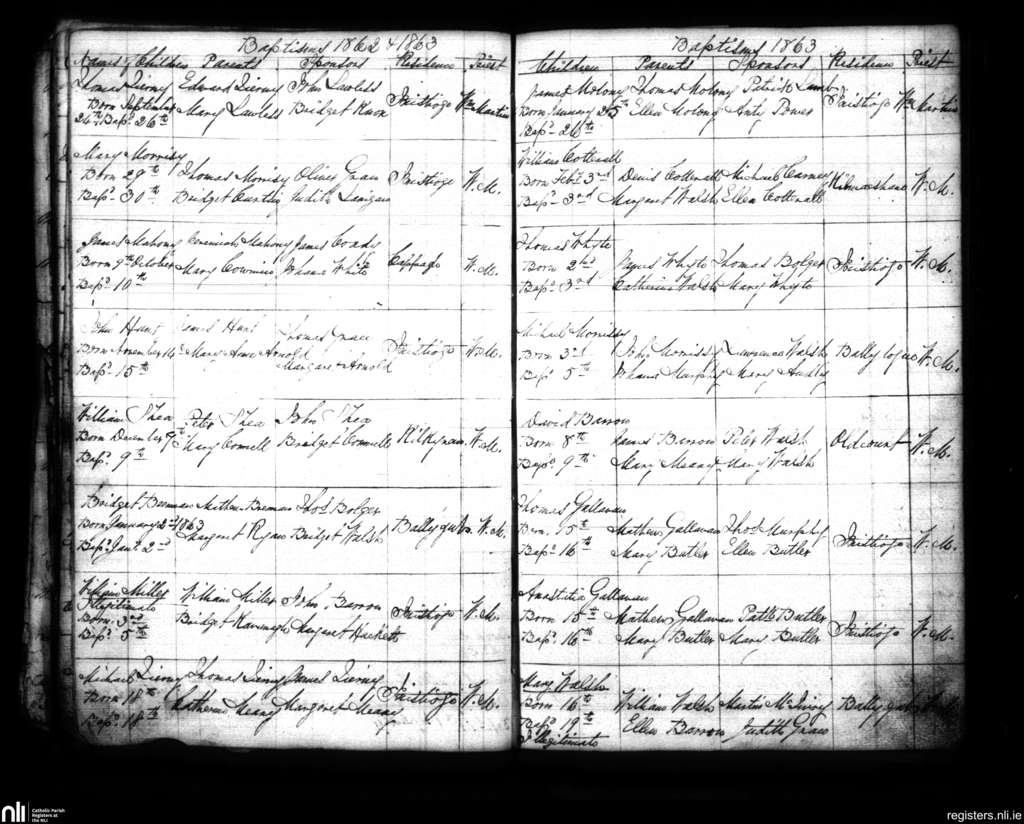 Baptisms 1862 & 1863
Names of Children Parents Sponsors Residence Priest
Thomas Tierney Edward Tierney John Lawless
Born September Mary Lawless Bridget Inistioge Wm Martin
24th Bapd. 26th
Mary Morrissy
Born 29th Thomas Morrissy Oliver Grace Inistioge W.M.
Bapd. 30th Bridget Judith Lanigan
James Mahony Jeremiah Mahony James Coady
Born 9th October Mary Johana White Cappagh W.M.
Bapd. 10th
John Hunt James Hunt Thomas Grace
Born November 14 Mary Anne Arnold Margaret Arnold Inistioge W.M.
Bapd. 15th
William Shea Peter Shea John Shea
Born December 9th Mary Connell Bridget Connell W.M.
Bapd. 9th
Bridget Brennan Mathew Brennan Thos. Bolger
Born January 2nd 1863 Margaret Ryan Bridget Walsh W.M.
Bapd. Jany. 2nd
William Miller William Miller John Barron
Illegitimate
Born 3rd Bridget Kavanagh Margaret Hackett Inistioge W.M.
Bapd. 5th
Michael Tierney Thomas Tierney James Tierney
Born 18th Catherine Meany Margaret Meany Inistioge W.M.
Bapd. 18th
Baptisms 1863
Children Parents Sponsors Residence Priest
James Molony Thomas Molony Patrick Lamb
Born January 25th Ellen Molony Anty Power Inistioge Wm Martin
Bapd. 26th
William Cotterall
Born Feby. 3rd Denis Cotterall Michael Carney W.M.
Bapd. 3rd Margaret Walsh Ellen Cotterall
Thomas Whyte
Born 2nd James Whyte Thomas Bolger Inistioge W.M.
Bapd. 3rd Catherine Walsh Mary Whyte
Michael Morrissy
Born 3rd John Morrissy Lawrence Walsh W.M.
Bapd. 5th Johana Murphy Mary
David Barron
Born 8th James Barron Peter Walsh Oldcourt W.M.
Bapd. 9th Mary Meany Mary Walsh
Thomas Gallavan
Born 15th Mathew Gallavan Thos. Murphy Inistioge W.M.
Bapd. 16th Mary Butler Ellen Butler
Anastatia Gallavan
Born 15th Mathew Gallavan Patk. Butler
Bapd. 16th Mary Butler Mary Butler Inistioge W.M.
Mary Walsh
Born 16th William Walsh Martin
Bapd. 19th Ellen Barron Judith Grace
Illegitimate
nli
Catholic Parish
Registers at
the NLI
registers.nli.ie